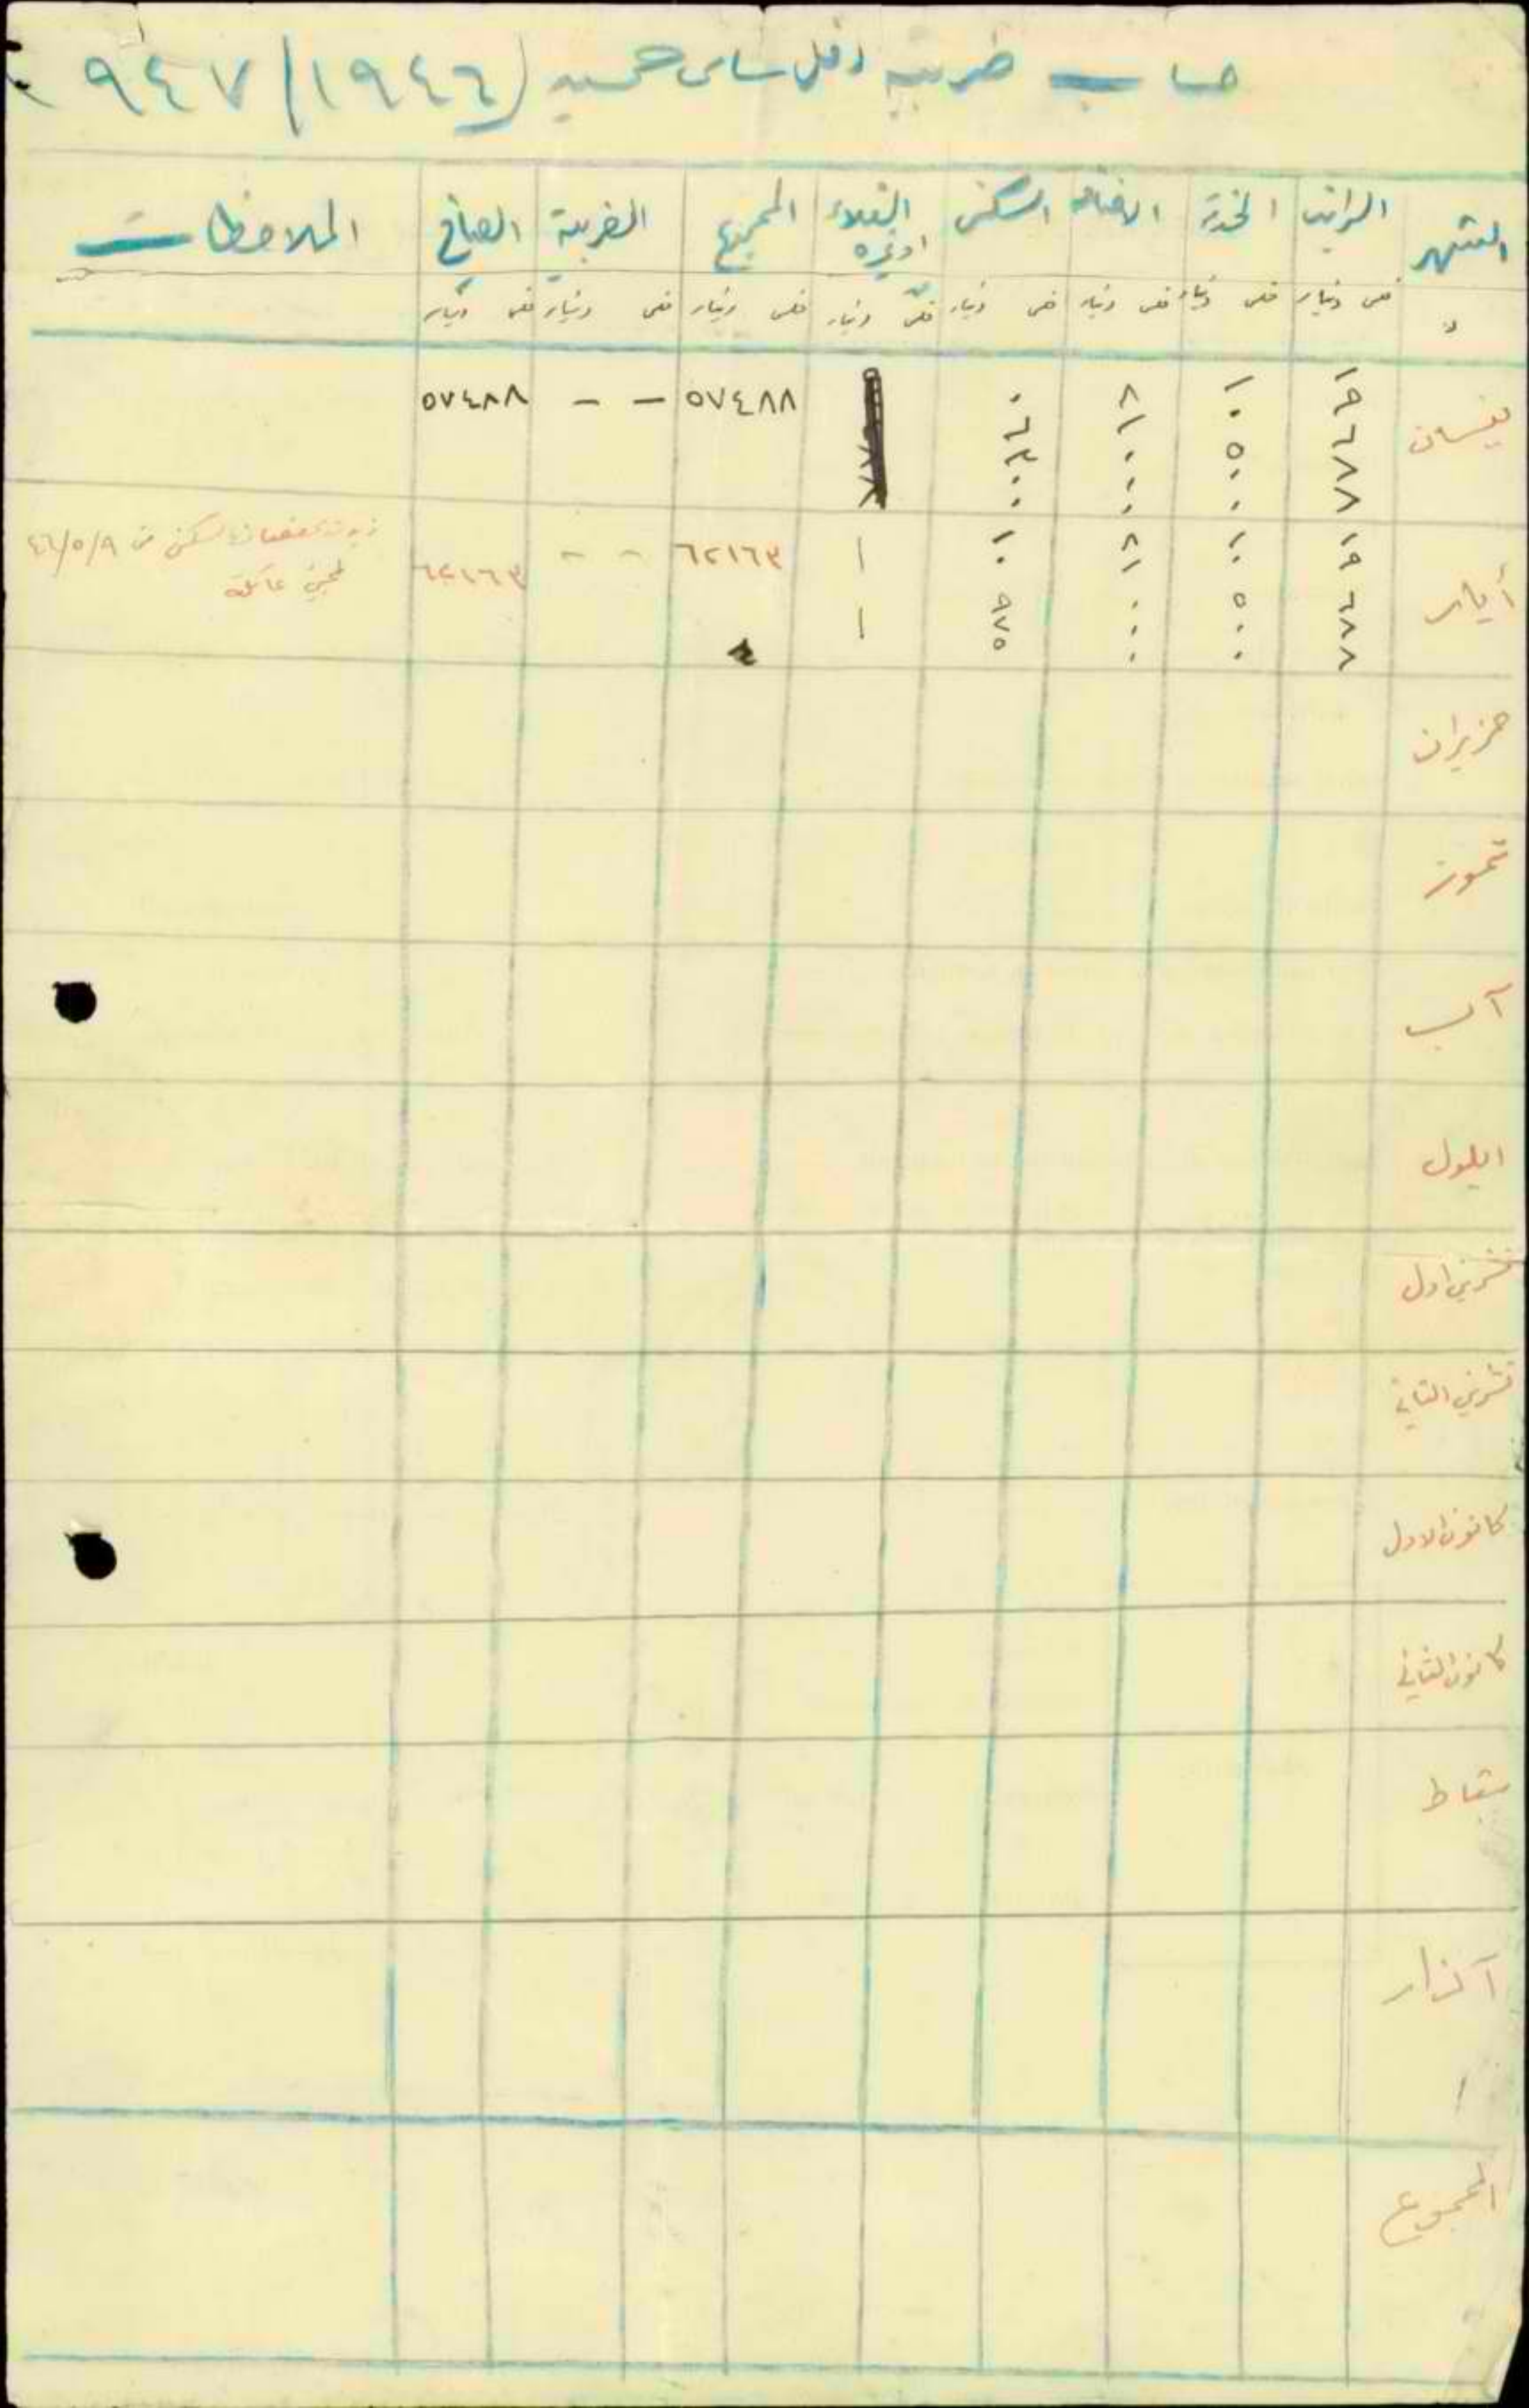 حساب ضريبة دخل سامي حسيب (١٩٤٦/١٩٤٧)
الشهر الراتب الخدمة الاضافة السكن الغلاء او غيره المجموع الضريبة الصافي الملاحظات
فلس دينار فلس دينار فلس دينار فلس دينار فلس دينار فلس دينار فلس دينار فلس دينار
نيسان ١٩٦٨٨ ١٠٥٠٠ ٢١٠٠٠ ٠٦٣٠٠ ٥٧٤٨٨ - - ٥٧٤٨٨
أيار ١٩٦٨٨ ١٠٥٠٠ ٢١٠٠٠ ١٠٩٧٥ ١ ١ ٦٢١٦٣ - - ٦٢١٦٣
السكن من ٤٦/٥/٩
عائلته
حزيران
تموز
آب
ايلول
تشرين اول
تشرين الثاني
كانون الاول
كانون الثاني
شباط
آذار
المجموع